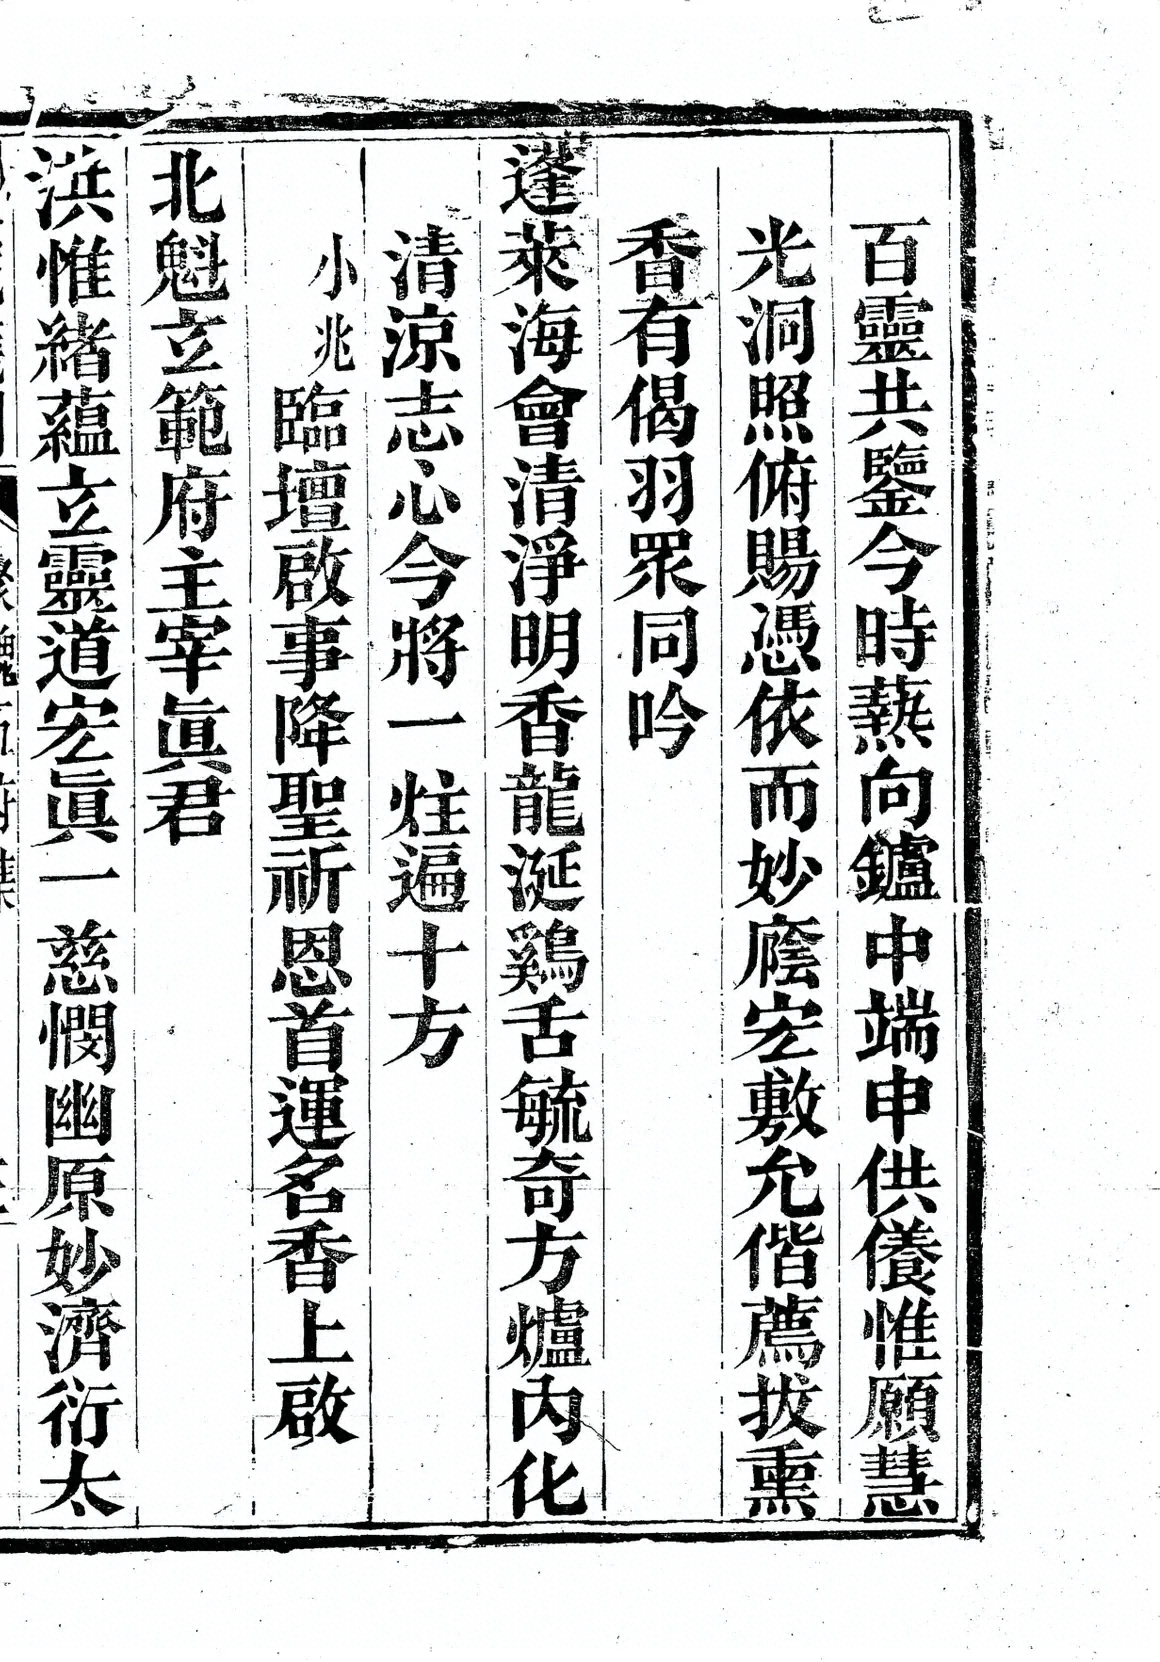 百靈共鑒今時爇向鑪中端申供養惟願慧
光洞照俯賜憑依而妙廕宏敷允偕薦拔熏
香有偈羽眾同吟
蓬萊海會清淨明香龍涎鷄舌毓奇方爐內化
清涼志心今將一炷遍十方
小兆臨壇啟事降聖祈恩首運名香上啟
北魁立範府主宰眞君
洪惟緒蘊立靈道宏眞一慈憫幽原妙濟衍太